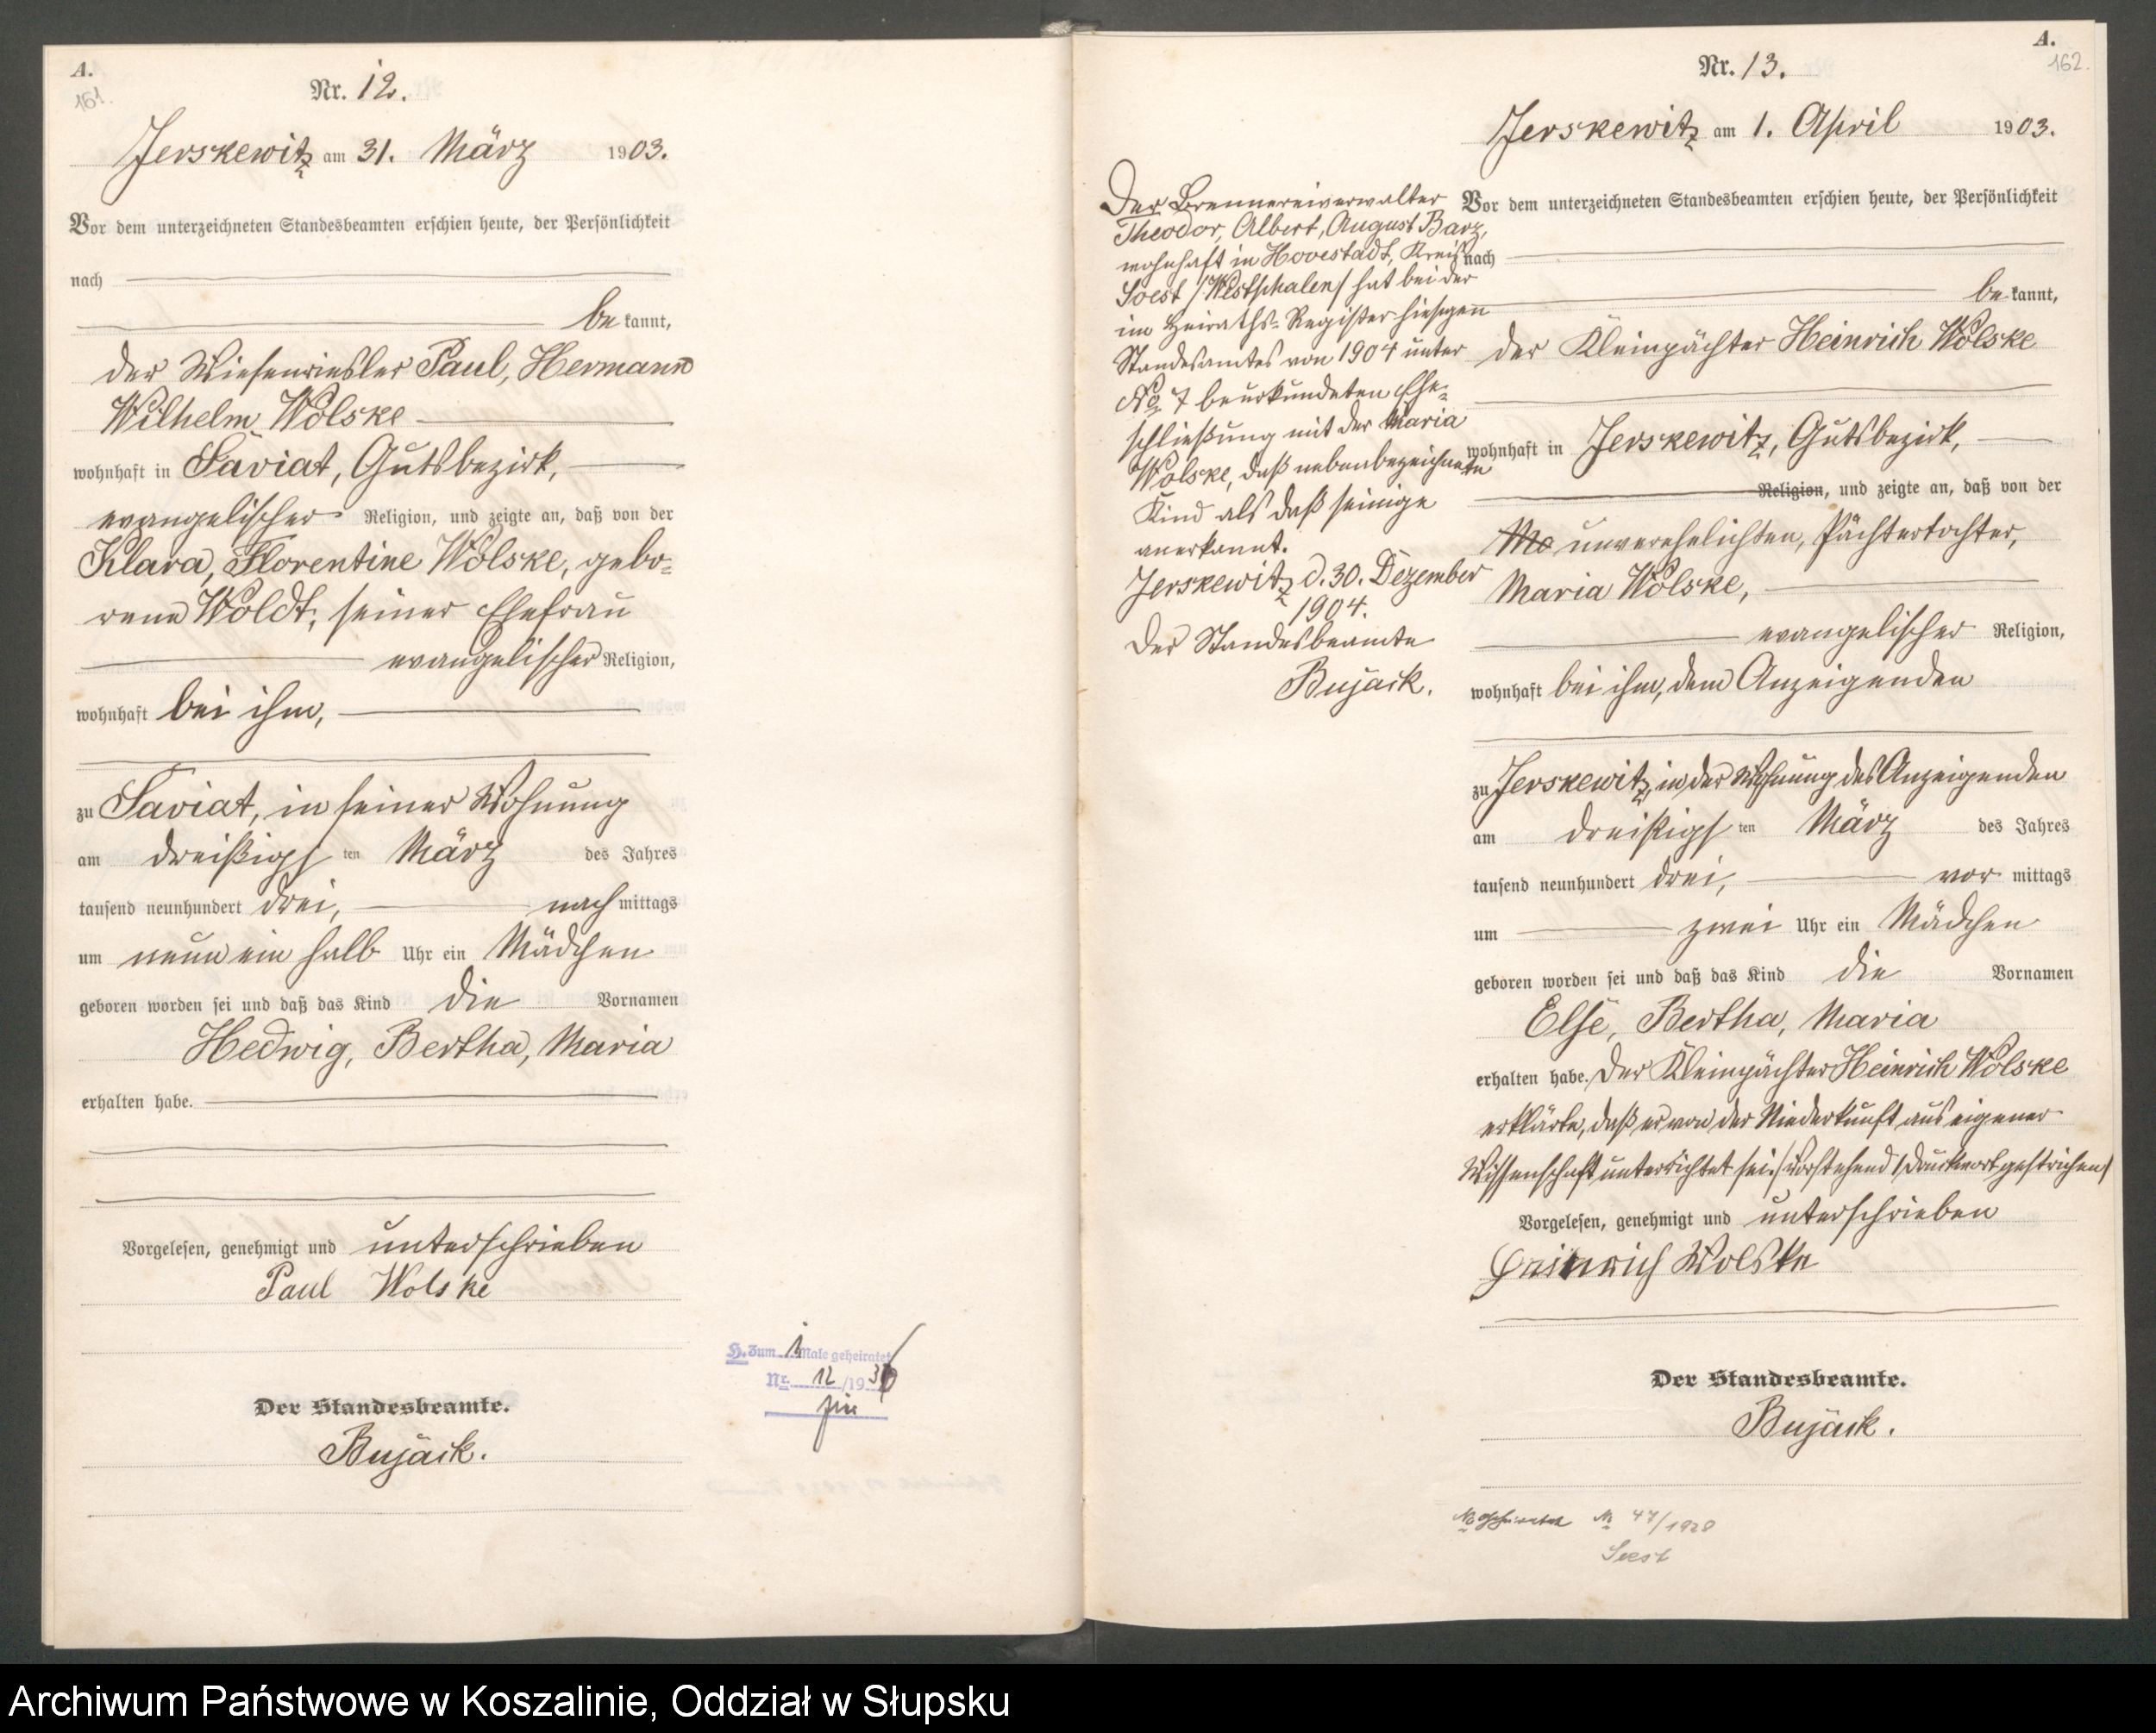 A.
161.
Nr. 12.
Jerskewitz am 31. März 1903.
Vor dem unterzeichneten Standesbeamten erschien heute, der Persönlichkeit
nach
bekannt,
der Wiesenriesler Paul, Hermann
Wilhelm Wolske
wohnhaft in Saviat, Gutsbezirk,
evangelischer Religion, und zeigte an, daß von der
Klara, Florentine Wolske, gebo-
rene Woldt, seiner Ehefrau
evangelischer Religion,
wohnhaft bei ihm,
zu Saviat, in seiner Wohnung
am dreißigsten März des Jahres
tausend neunhundert drei, nachmittags
um neun ein halb Uhr ein Mädchen
geboren worden sei und daß das Kind die Vornamen
Hedwig, Bertha, Maria
erhalten habe.
Vorgelesen, genehmigt und unterschrieben
Paul Wolske
Der Standesbeamte.
Bujack.
H. Zum 1 Male geheiratet
Nr. 12/19
A.
162.
Nr. 13.
Jerskewitz am 1. April 1903.
Vor dem unterzeichneten Standesbeamten erschien heute, der Persönlichkeit
nach
bekannt,
der Kleinpächter Heinrich Wolske
wohnhaft in Jerskewitz, Gutsbezirk,
Religion, und zeigte an, daß von der
Ma unverehelichten, Pächtertochter,
Maria Wolske,
evangelischer Religion,
wohnhaft bei ihm, dem Anzeigenden
zu Jerskewitz, in der Wohnung des Anzeigenden
am dreißigsten März des Jahres
tausend neunhundert drei, vormittags
um zwei Uhr ein Mädchen
geboren worden sei und daß das Kind die Vornamen
Else, Bertha, Maria
erhalten habe. Der Kleinpächter Heinrich Wolske
erklärte, daß er von der Niederkunft aus eigener
Wissenschaft unterrichtet sei. /Vorstehend 1 Druckwort gestrichen/
Vorgelesen, genehmigt und unterschrieben
Heinrich Wolske
Der Standesbeamte.
Bujack.
Der Brennereiverwalter
Theodor, Albert, August Barz,
wohnhaft in Hovestadt, Kreis
Soest /Westphalen/ hat bei der
im Heiraths-Register hiesigen
Standesamtes von 1904 unter
No 7 beurkundeten Ehe-
schließung mit der Maria
Wolske, daß nebenbezeichnete
Kind als daß seinige
anerkannt.
Jerskewitz d. 30. Dezember
1904.
Der Standesbeamte
Bujack.
geheiratet Nr 47/1928
Soest
Archiwum Państwowe w Koszalinie, Oddział w Słupsku